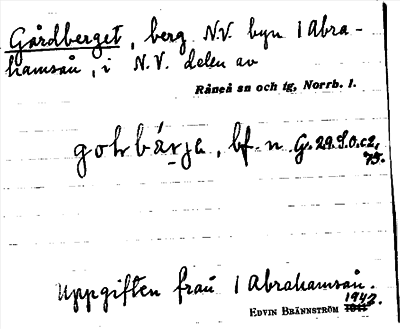 Gårdberget, berg N.V. byn i Abra-
hamsån, i N.V. delen av
Råneå sn och tg, Norrb. l.
bf. n
Uppgiften från i Abrahamsån.
EDVIN BRÄNNSTRÖM 1942.